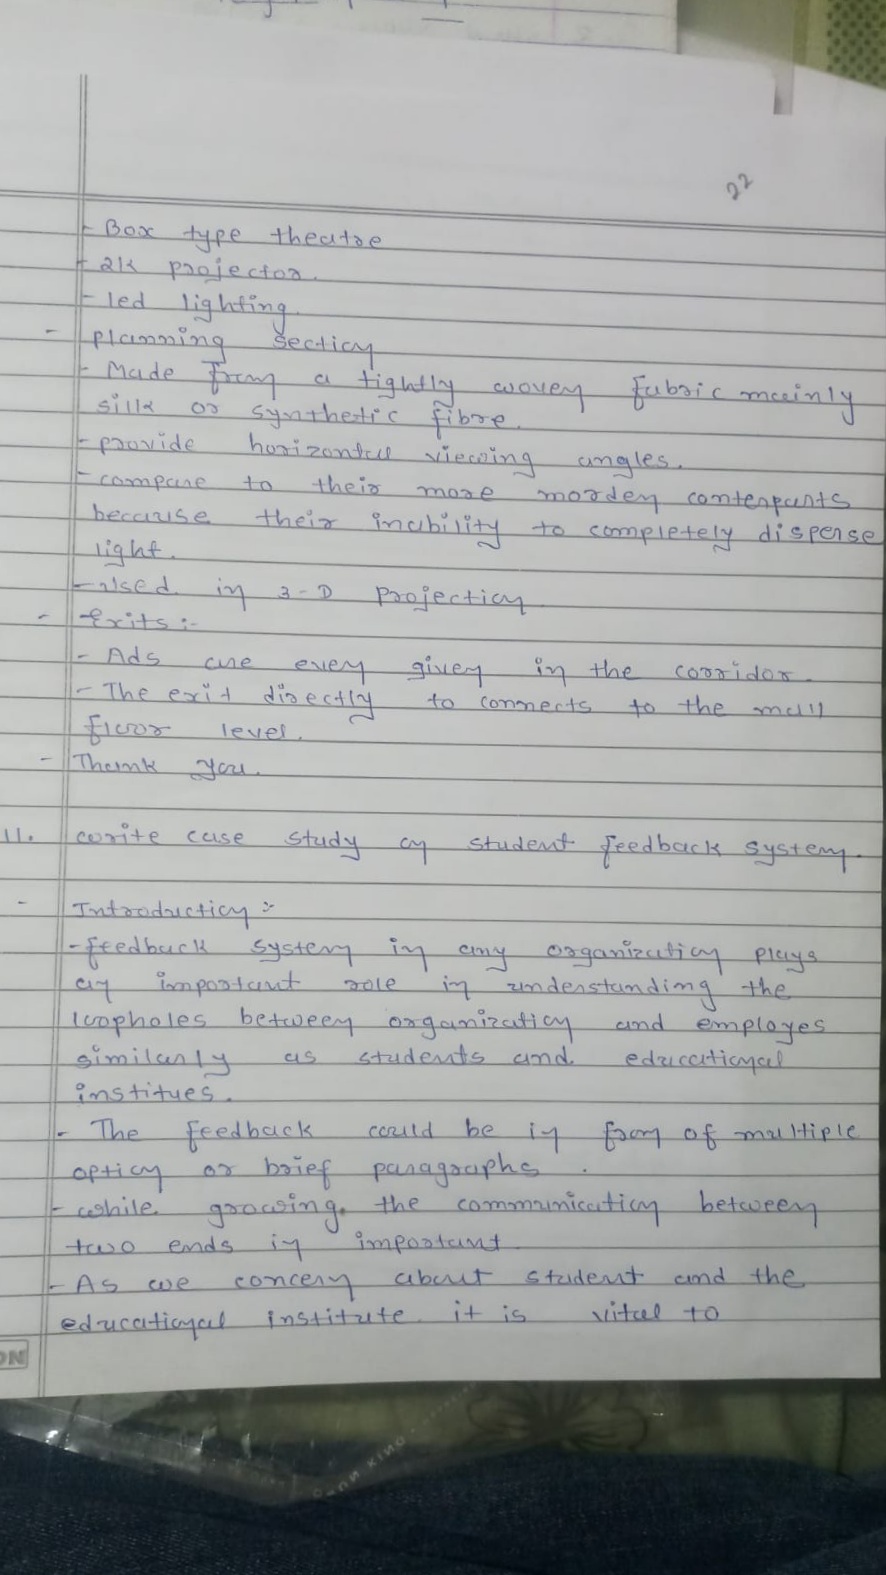 22
- Box type theatre
- 2K projector.
- led lighting.
- planning section
- Made from a tightly woven fabric mainly
silk or synthetic fibre.
- provide horizontal viewing angles.
- compare to their more morden contenparts
because their inability to completely disperse
light.
- Used in 3-D projection
- Exits :-
- Ads are even given in the corridor.
- The exit directly to connects to the mall
floor level.
- Thank you.
11. write case study on student feedback system.
- Introduction :-
- feedback system in any organization plays
an important role in understanding the
loopholes between organization and employes
similarly as students and educational
institues.
- The feedback could be in from of multiple
option or brief paragraphs .
- while growing. the communication between
two ends in important
- As we concern about student and the
educational institute. it is vital to
ON